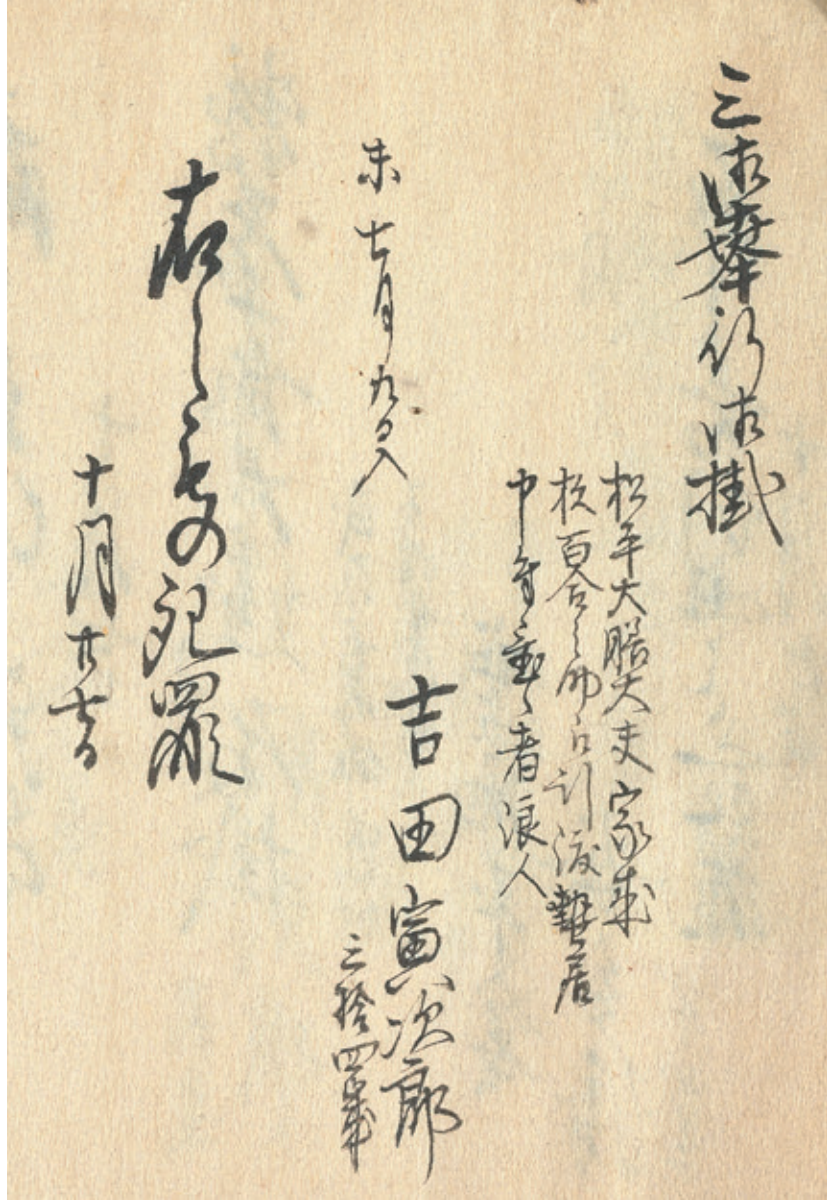 三御奉行御掛
松平大膳大夫家来
杉百合之助江引渡蟄居
申付置候者浪人
吉田寅次郎
三拾四歳
未七月九日入
右之もの死罪
十月廿七日